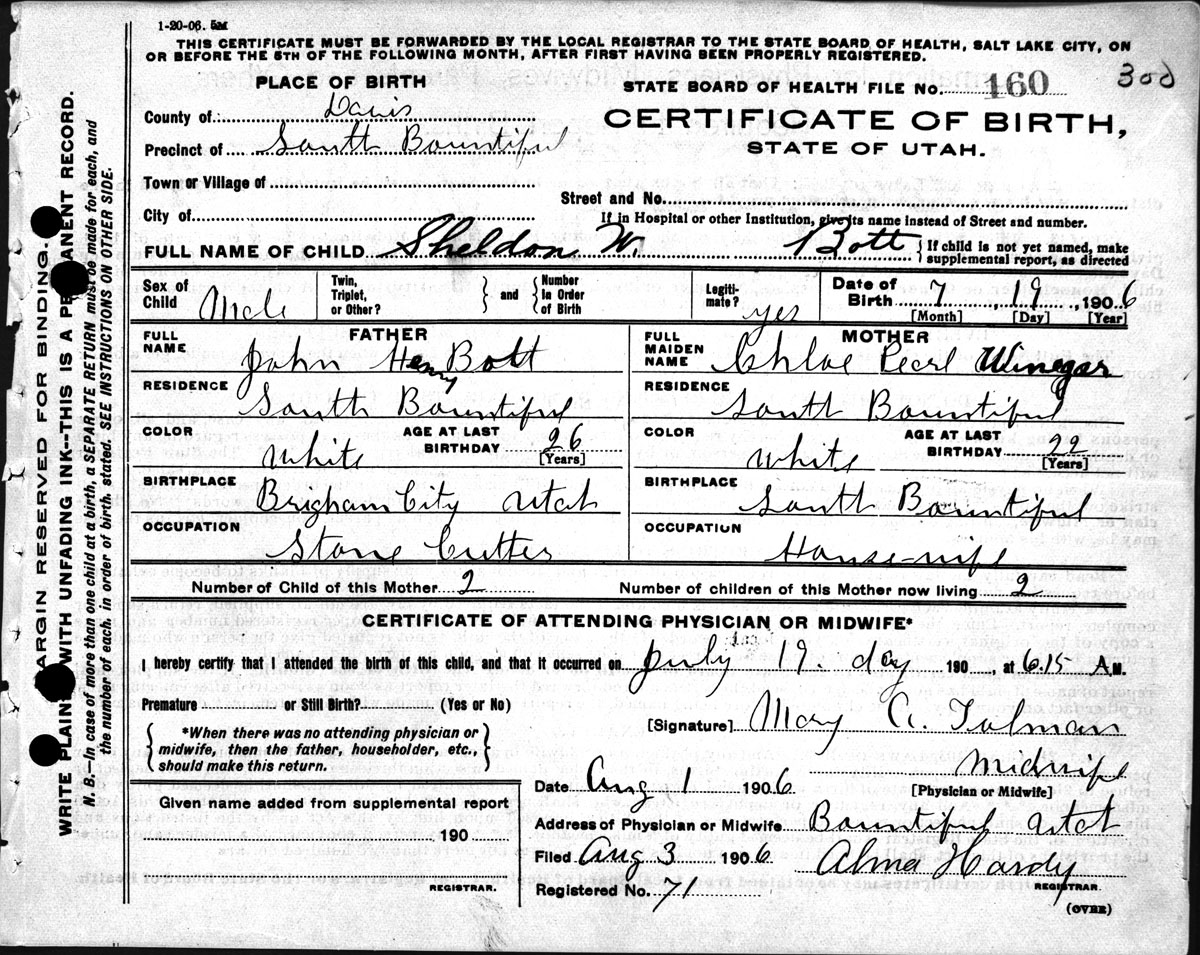 1-20-06. 5M
THIS CERTIFICATE MUST BE FORWARDED BY THE LOCAL REGISTRAR TO THE STATE BOARD OF HEALTH, SALT LAKE CITY, ON
OR BEFORE THE 5TH OF THE FOLLOWING MONTH, AFTER FIRST HAVING BEEN PROPERLY REGISTERED.
PLACE OF BIRTH
STATE BOARD OF HEALTH FILE No. 160 300
County of: Davis
CERTIFICATE OF BIRTH,
Precinct of South Bountiful
STATE OF UTAH.
Town or Village of
Street and No.
City of
If in Hospital or other Institution, give its name instead of Street and number.
FULL NAME OF CHILD Sheldon W. Bott { If child is not yet named, make
supplemental report, as directed
Sex of Child Male
Twin, Triplet, or Other? } and { Number In Order of Birth
Legiti-mate? yes
Date of Birth 7, 19, 1906
[Month] [Day] [Year]
FATHER
FULL NAME John Henry Bott
MOTHER
FULL MAIDEN NAME Chloe Pearl Winegar
RESIDENCE South Bountiful
RESIDENCE South Bountiful
COLOR White AGE AT LAST BIRTHDAY 26 [Years]
COLOR White AGE AT LAST BIRTHDAY 22 [Years]
BIRTHPLACE Brigham City Utah
BIRTHPLACE South Bountiful
OCCUPATION Stone Cutter
OCCUPATION House-wife
Number of Child of this Mother 2 Number of children of this Mother now living 2
CERTIFICATE OF ATTENDING PHYSICIAN OR MIDWIFE*
I hereby certify that I attended the birth of this child, and that it occurred on July 19. day 190 , at 6.15 A M.
Premature or Still Birth? (Yes or No)
[Signature] Mary A. Tolman
{ *When there was no attending physician or
midwife, then the father, householder, etc.,
should make this return. }
Midwife
Date Aug 1 1906 [Physician or Midwife]
Given name added from supplemental report
Address of Physician or Midwife Bountiful Utah
190
Filed Aug 3 1906 Alma Hardy
REGISTRAR. REGISTRAR.
Registered No. 71
(OVER)
MARGIN RESERVED FOR BINDING.
WRITE PLAINLY WITH UNFADING INK--THIS IS A PERMANENT RECORD.
N. B.—In case of more than one child at a birth, a SEPARATE RETURN must be made for each, and
the number of each, in order of birth, stated. SEE INSTRUCTIONS ON OTHER SIDE.